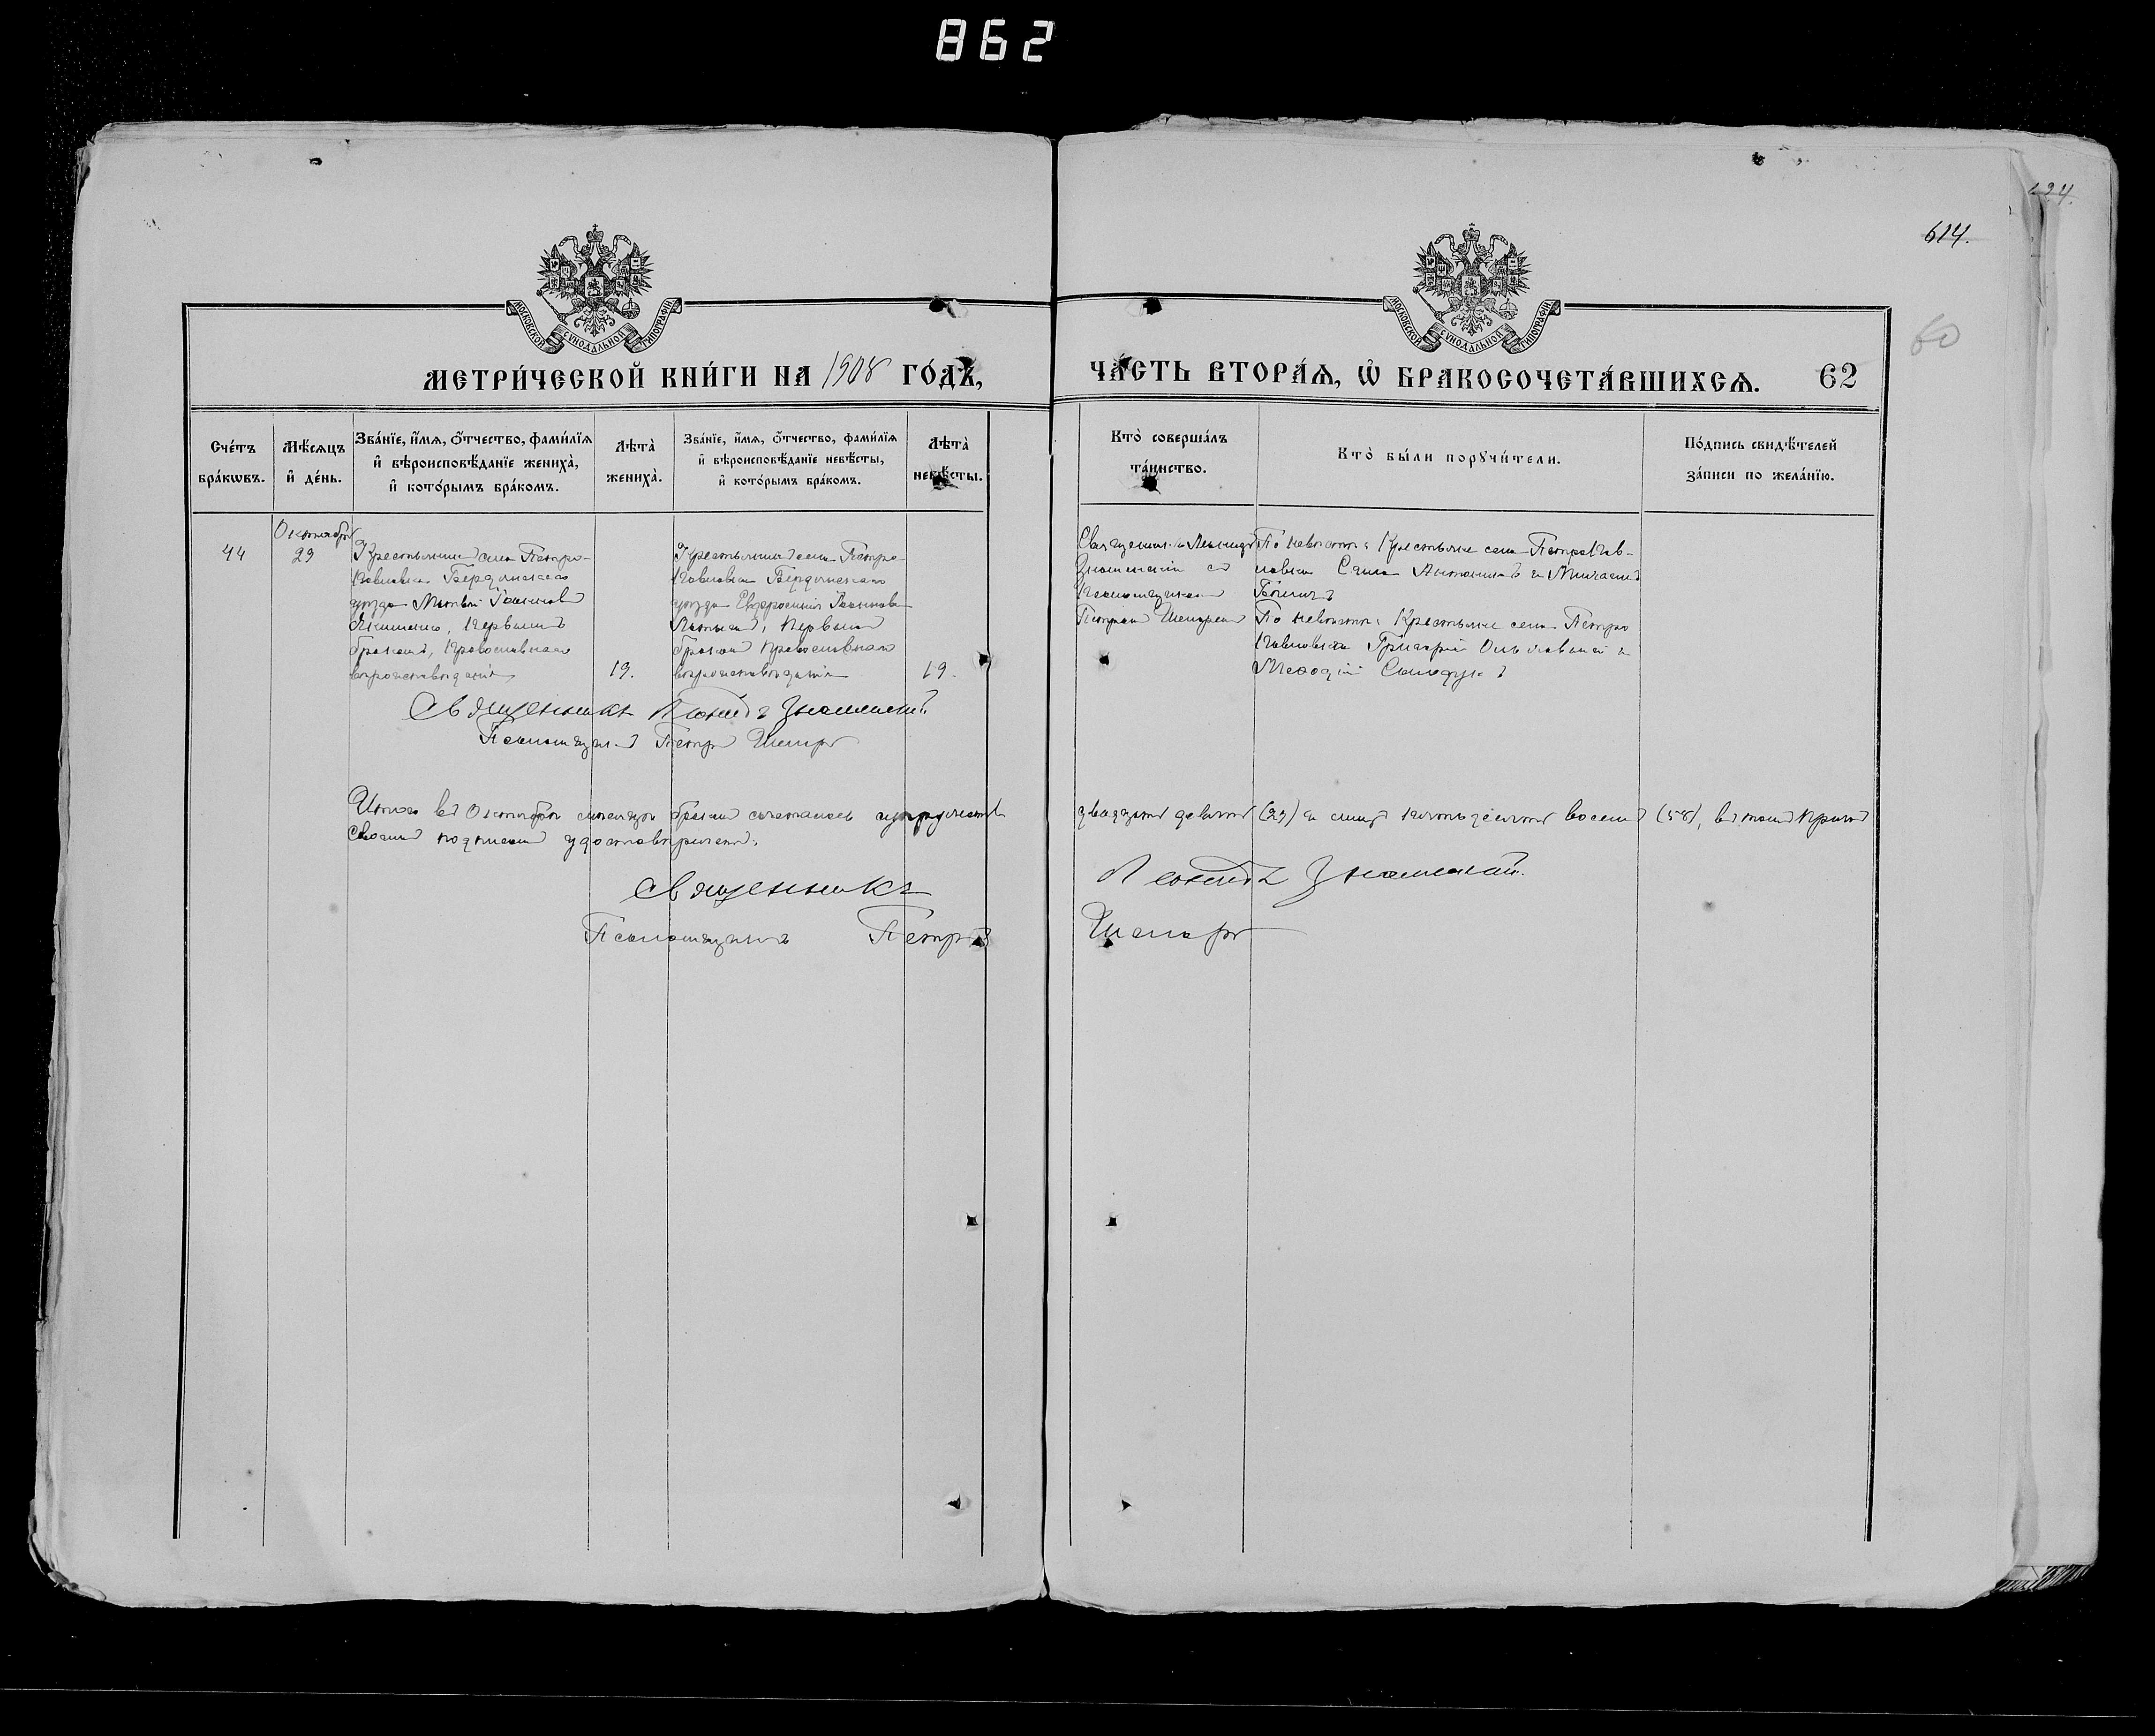 862
424.
614.
60
МОСКОВСКОЙ СѴНОДАЛЬНОЙ ТИПОГРАФІИ
МОСКОВСКОЙ СѴНОДАЛЬНОЙ ТИПОГРАФІИ
МЕТРИ́ЧЕСКОЙ КНИ́ГИ НА 1908 ГО́ДЪ,
ЧА́СТЬ ВТОРА́Ѧ, Ѽ БРАКОСОЧЕТА́ВШИХСѦ. 62
Сче́тъ бра́кѡвъ.
Мѣ́сѧцъ и҆ де́нь.
Зва́нїе, и҆́мѧ, ѻ҆́тчество, фами́лїѧ
и҆ вѣроисповѣ́данїе жениха̀,
и҆ кото́рымъ бра́комъ.
Лѣта̀ жениха̀.
Зва́нїе, и҆́мѧ, ѻ҆́тчество, фами́лїѧ
и҆ вѣроисповѣ́данїе невѣ́сты,
и҆ кото́рымъ бра́комъ.
Лѣта̀ невѣ́сты.
Кто̀ соверша́лъ
та́инство.
Кто̀ бы́ли порꙋчи́тели.
По́дпись свидѣ́телей
за́писи по жела́нїю.
44
Октябрь
29
Крестьянинъ села Петро-
Павловки Бердянскаго
уѣзда Матвѣй Іоанновъ
первымъ
бракомъ, православнаго
вѣроисповѣданія
19.
села Петро-
Павловки Бердянскаго
уѣзда Евфросинія Іоаннова
первымъ
бракомъ православнаго
вѣроисповѣданія
19.
Священникъ Леонидъ
Знаменскій съ
псаломщикомъ
Петромъ
Крестьяне села ПетроПав-
ловки Савва и Михаилъ
По невѣстѣ: Крестьяне села Петро
Павловки Григорій и
Меѳодій
Священникъ Леонидъ Знаменскій
Псаломщикъ Петръ
Итого въ Октябрѣ мѣсяцѣ бракомъ сочеталось двадцать девять (29) а лицъ пятьдесятъ восемь (58), въ томъ причтъ
своимъ подписомъ удостовѣряетъ:
Священникъ Леонидъ Знаменскій
Псаломщикъ Петръ